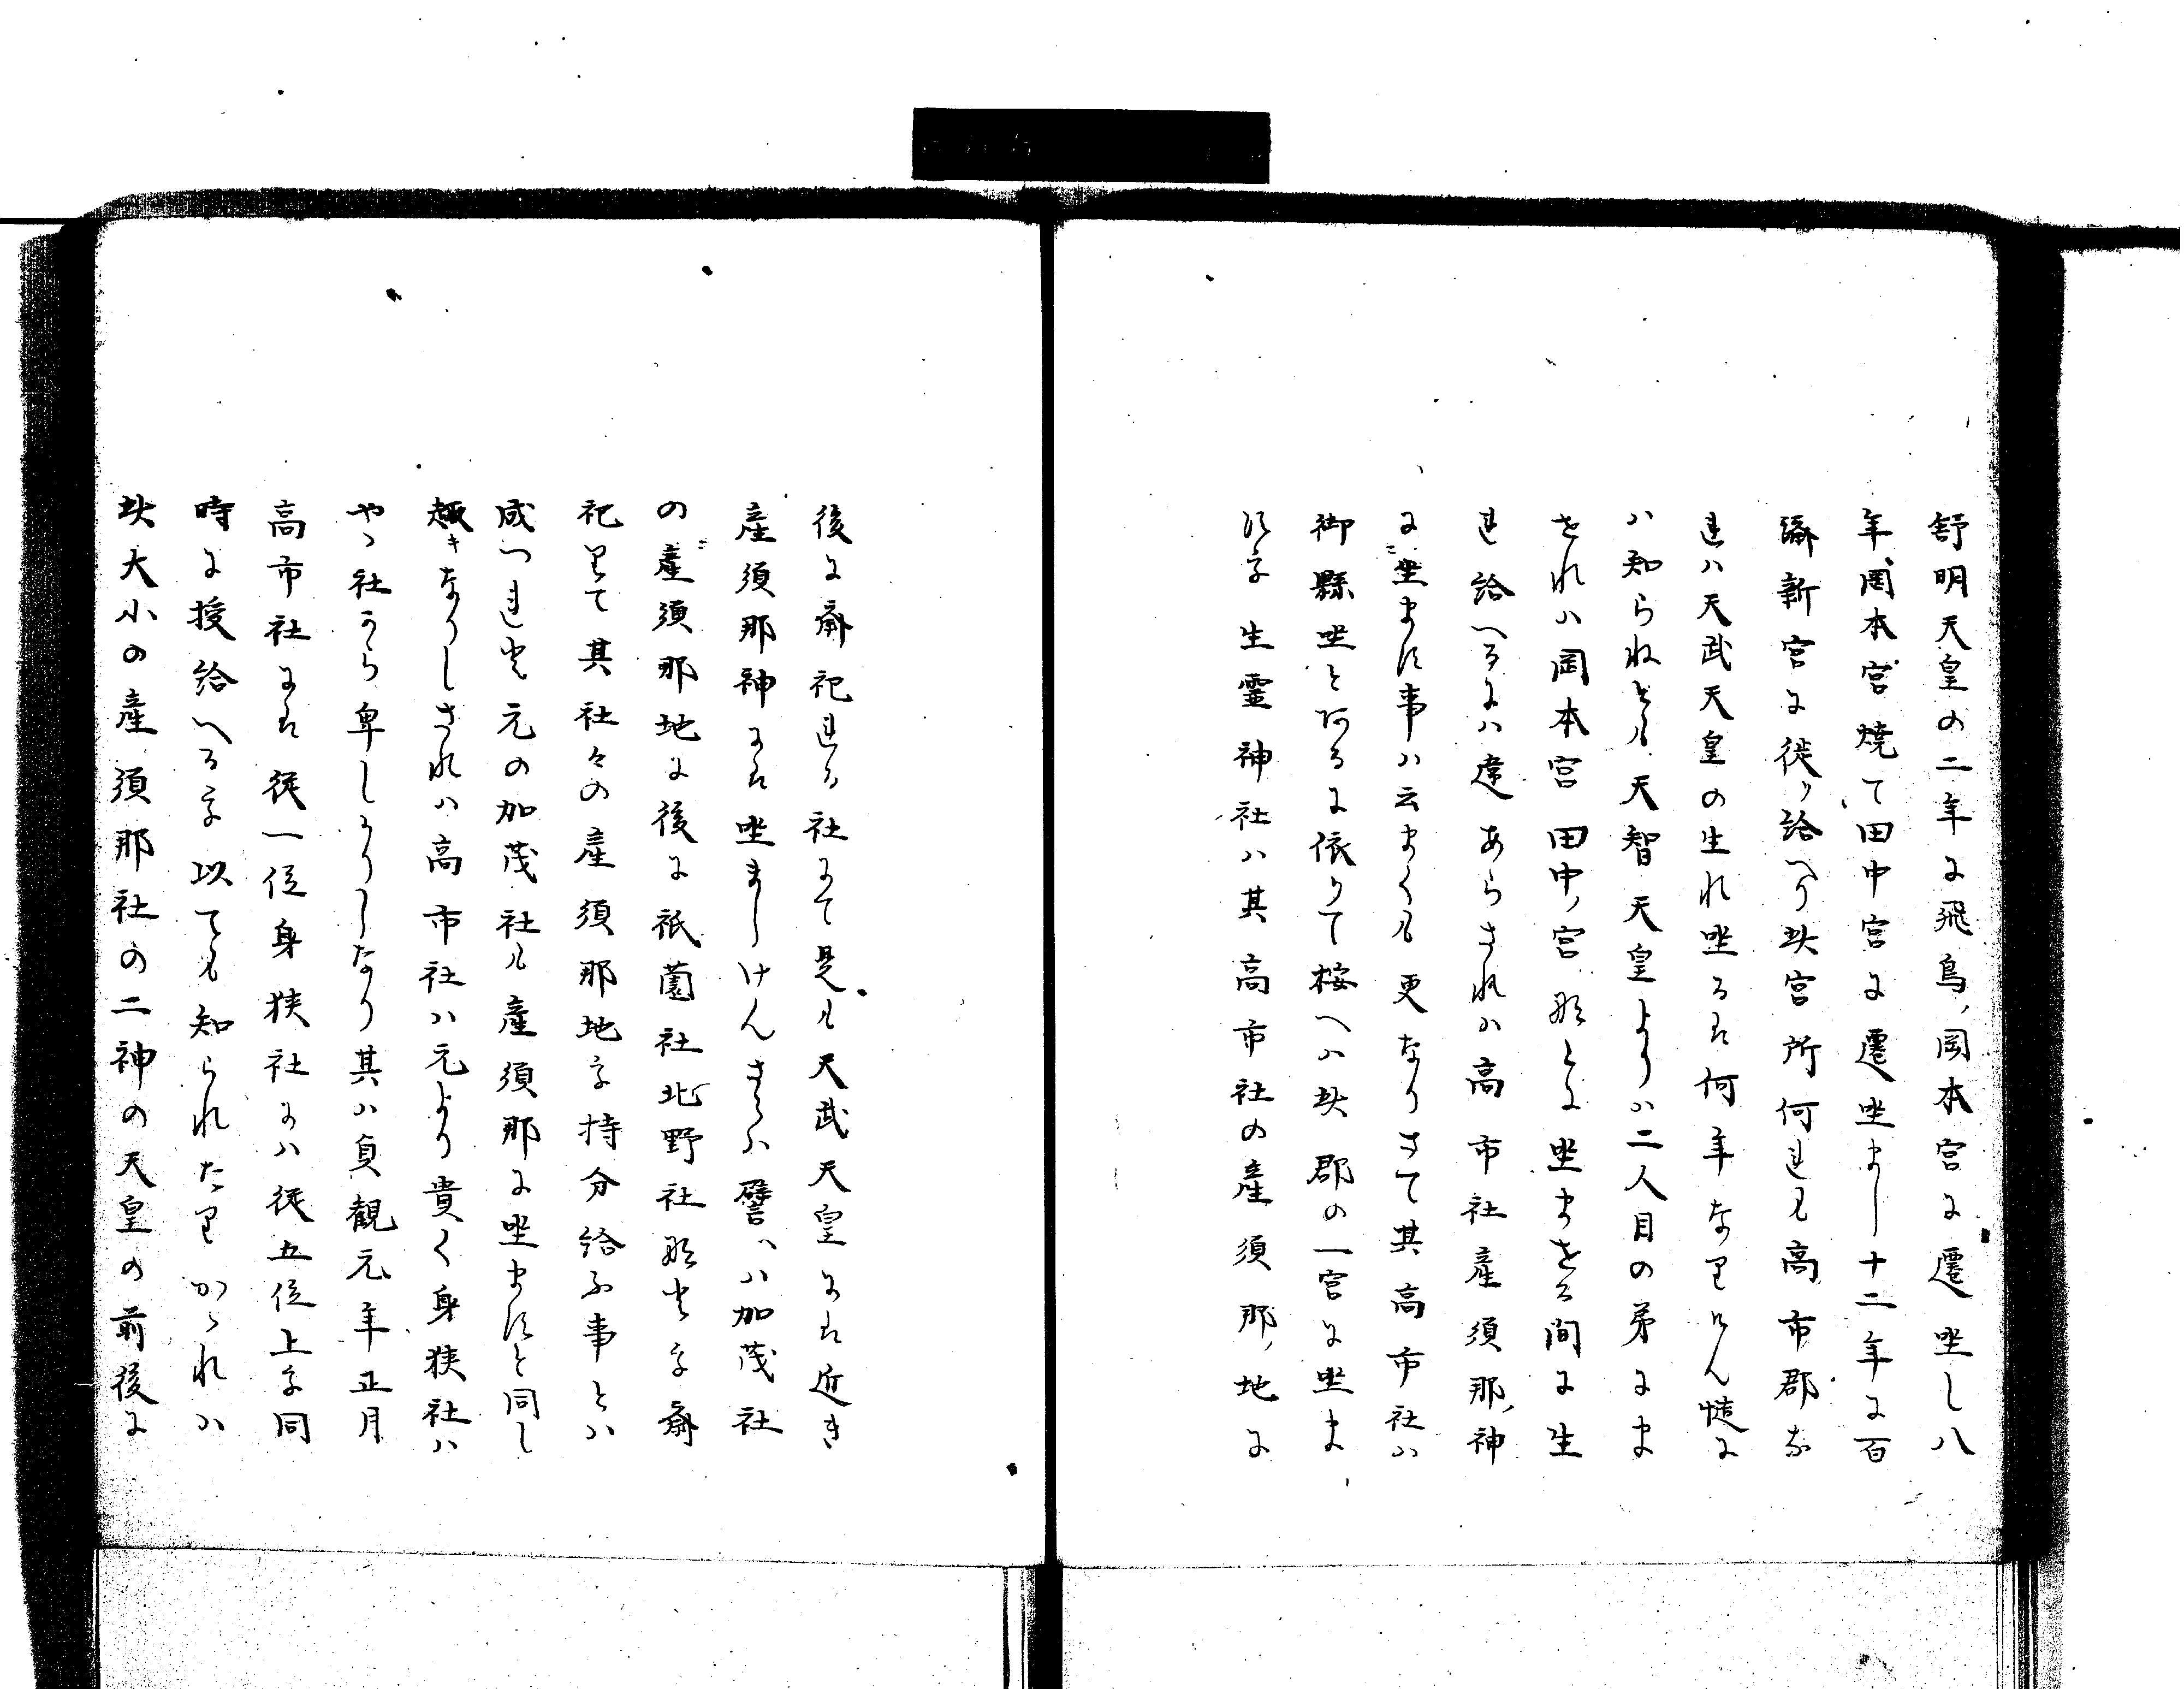 舒明天皇の二年に飛鳥ノ岡本宮に遷坐し八
年岡本宮焼て田中宮に遷坐まし十二年に百
濟新宮に徙り給へり此宮所何れも高市郡な
れハ天武天皇の生れ坐るは何年なりけん慥に
ハ知られねとも天智天皇よりハ二人目の弟にま
せれハ岡本宮田中ノ宮なとに坐ませる間に生
れ給へるにハ違あらされハ高市社産須那ノ神
に坐ます事ハ云まくも更なりさて其高市社ハ
御縣坐とあるに依りて桉へハ此郡の一宮に坐ま
すを生霊神社ハ其高市社の産須那ノ地に
後に齋祀れる社にて是も天武天皇には近き
産須那神には坐ましけんさるハ譬ハ加茂社
の産須那地に後に祇園社北野社なとを齋
祀りて其社々の産須那地を持分給ふ事とハ
成つれと元の加茂社も産須那に坐ますと同し
趣きなりしされハ高市社ハ元より貴く身狭社ハ
やゝ社から卑しかりしなり其ハ貞観元年正月
高市社には従一位身狭社にハ従五位上を同
時に授給へるを以ても知られたりかゝれハ
此大小の産須那社の二神の天皇の前後に